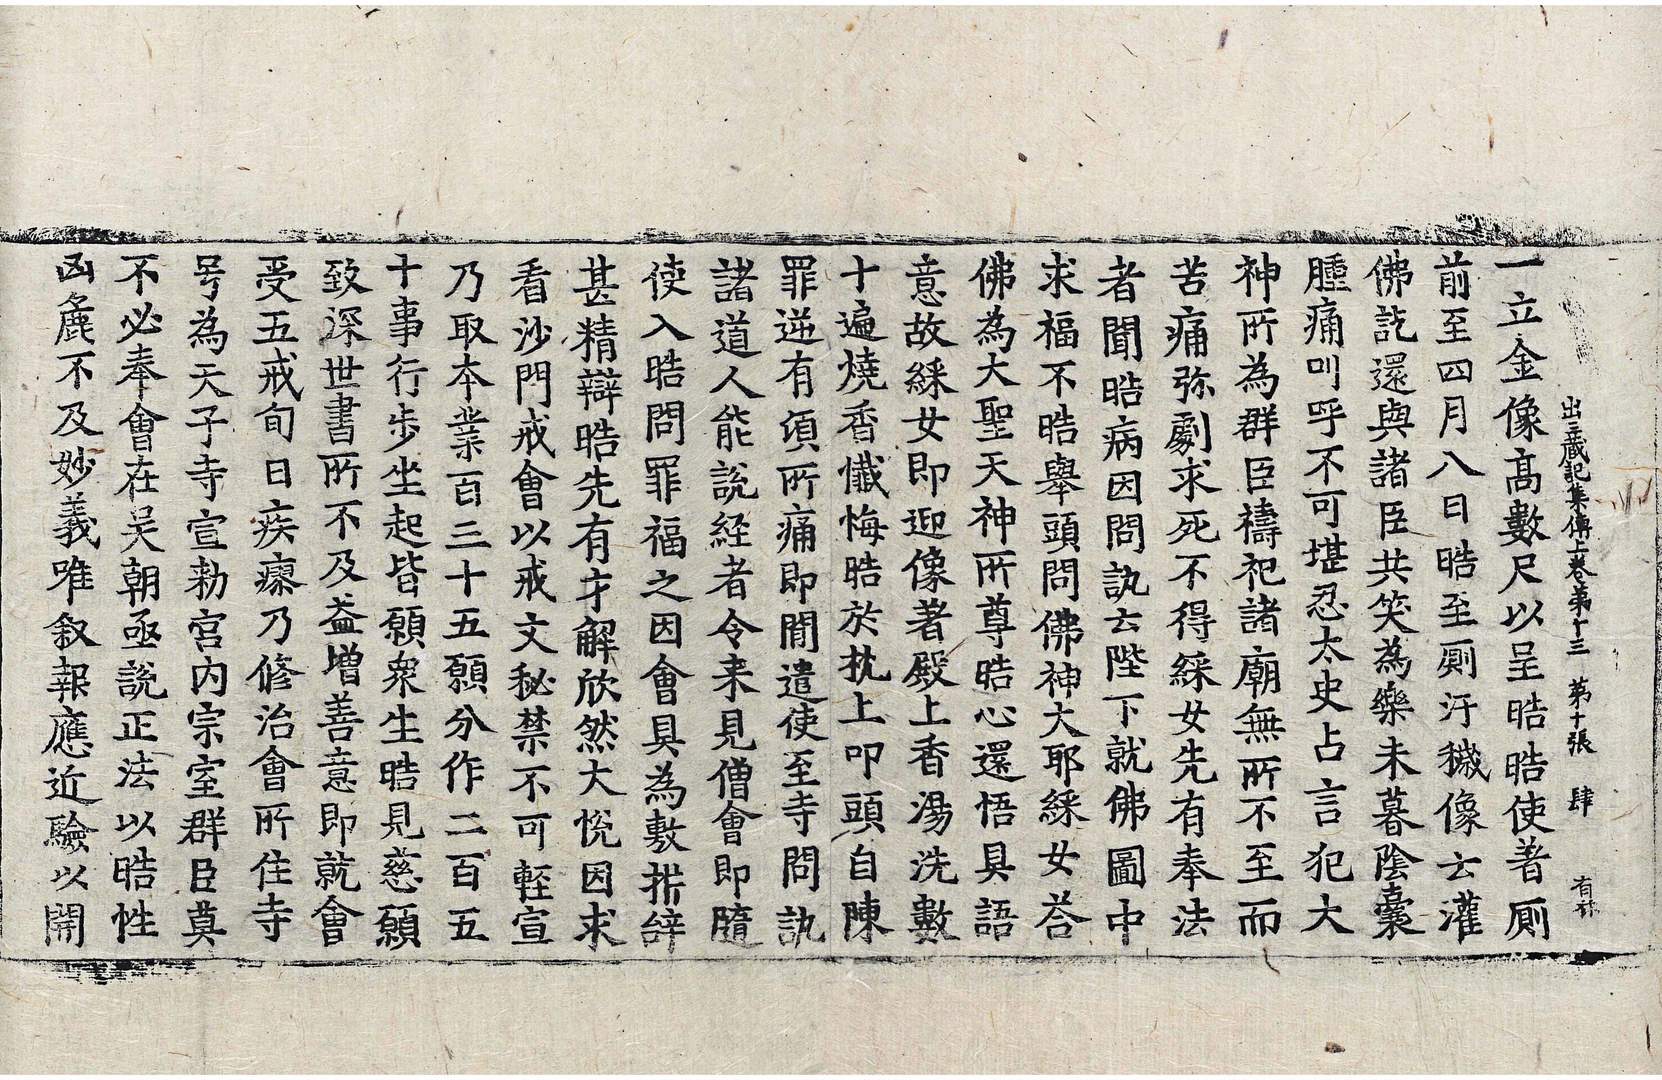 出三藏記集傳上卷第十三　第十張　肆
一立金像高數尺以呈晧晧使著厠
前至四月八日晧至厠汙穢像云灌
佛訖還與諸臣共笑為樂未暮陰囊
腫痛叫呼不可堪忍太史占言犯大
神所為群臣禱祀諸廟無所不至而
苦痛弥劇求死不得綵女先有奉法
者聞晧病因問訊云陛下就佛圖中
求福不晧舉頭問佛神大耶綵女荅
佛為大聖天神所尊晧心還悟具語
意故綵女即迎像著殿上香湯洗數
十遍燒香懺悔晧於枕上叩頭自陳
罪逆有頃所痛即閒遣使至寺問訊
諸道人能說経者令来見僧會即隨
使入晧問罪福之因會具為敷析辝
甚精辯晧先有才解欣然大悅因求
看沙門戒會以戒文秘禁不可輕宣
乃取本業百三十五願分作二百五
十事行步坐起皆願衆生晧見慈願
致深世書所不及益增善意即就會
受五戒旬日疾瘳乃修治會所住寺
号為天子寺宣勑宮内宗室群臣莫
不必奉會在吴朝亟說正法以晧性
凶麁不及妙義唯叙報應近驗以開